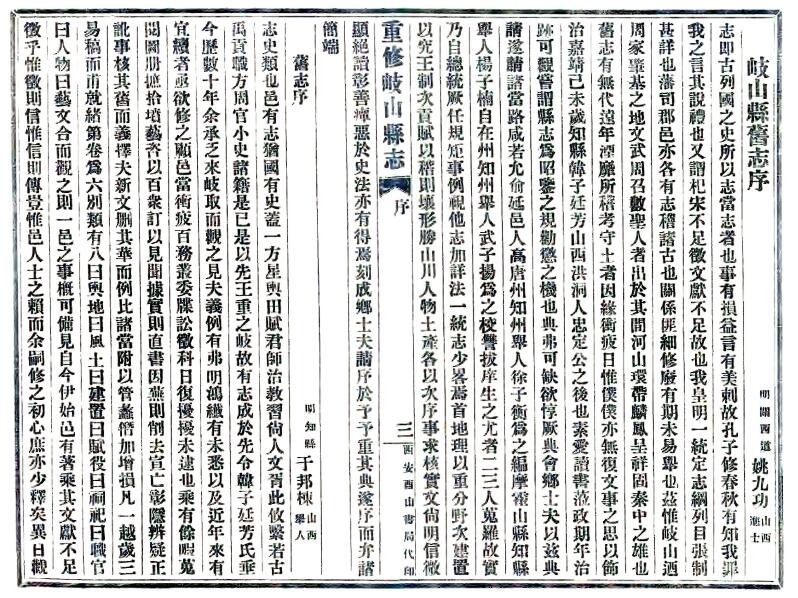 岐山縣舊志序
明關西道 姚九功 山西進士
志即古列國之史所以志當志者也事有損益言有美刺故孔子修春秋有知我罪
我之言其說禮也又謂杞宋不足徵文獻不足故也我皇明一統定志綱列目張制
甚詳也藩司郡邑亦各有志稽諸古也關係匪細修廢有期未易舉也茲惟岐山迺
周家肇基之地文武周召數聖人者出於其間河山環帶麟鳳呈祥固秦中之雄也
舊志有無代遠年湮靡所稽考守土者因緣衝疲日惟僕僕亦無復文事之思以飾
治嘉靖己未歲知縣韓子廷芳山西洪洞人忠定公之後也素愛讀書蒞政期年治
跡可觀嘗謂縣志爲昭鑒之規勸懲之機也典弗可缺欲惇厥典會鄉士夫以茲典
請遂請諸當路咸若允俞延邑人高唐州知州舉人徐子衡爲之編摩霍山縣知縣
舉人楊子楠自在州知州舉人武子揚爲之校讐拔庠生之尤者二三人蒐羅故實
乃自總統厥任規矩事例視他志加詳法一統志少畧焉首地理以重分野次建置
以究王制次貢賦以稽則壤形勝山川人物土產各以次序事求核實文尚明信微
顯絕讀彰善癉惡於史法亦有得焉刻成鄉士夫請序於予予重其典遂序而弁諸
簡端
重修岐山縣志
序
三
西安酉山書局代印
舊志序
明知縣 于邦棟 山西舉人
志史類也邑有志猶國有史蓋一方星輿田賦君師治教習尚人文胥此攸繫若古
禹貢職方周官小史諸籍是已是以先王重之岐故有志成於先令韓子廷芳氏垂
今歷數十年余承乏來岐取而觀之見夫義例有弗明鴻纖有未悉以及近年來有
宜續者亟欲修之顧邑當衝疲百務叢委牒訟徵科日復擾擾未逮也乘有餘暇蒐
閱圖冊摭拾墳藝咨以百衆訂以見聞據實則直書因蕪則削去宣亡彰隱辨疑正
訛事核其舊而義擇夫新文刪其華而例比諸當附以管蠡僭加增損凡一越歲三
易稿而甫就緒第卷爲六別類有八曰輿地曰風土曰建置曰賦役曰祠祀曰職官
曰人物曰藝文合而觀之則一邑之事概可備見自今伊始邑有著乘其文獻不足
徵乎惟徵則信惟信則傳豈惟邑人士之賴而余嗣修之初心庶亦少釋矣異日觀